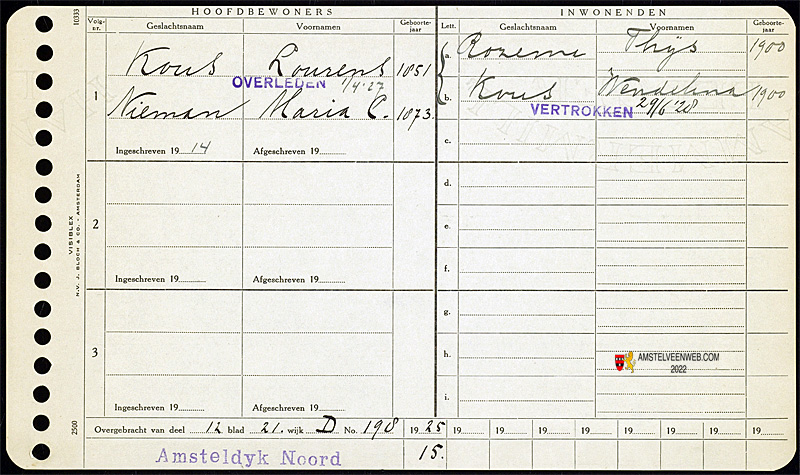 HOOFDBEWONERS
INWONENDEN
Volg-nr.
Geslachtsnaam
Voornamen
Geboorte-jaar
Lett.
Geslachtsnaam
Voornamen
Geboorte-jaar
1
Kous Lourens 1851
OVERLEDEN 1/4-27
Nieman Maria C. 1873
Ingeschreven 19 14 Afgeschreven 19
a. Rozeme Thijs 1900
b. Kous Wendelina 1900
VERTROKKEN 29/6'28
c.
d.
2
e.
f.
Ingeschreven 19 Afgeschreven 19
g.
3
h.
AMSTELVEENWEB.COM
2022
i.
Ingeschreven 19 Afgeschreven 19
Overgebracht van deel 12 blad 21. wijk D No. 198 19 25 19 19 19 19 19 19 19 19
Amsteldyk Noord 15.
10333
VISIBLEX
N.V. J. BLOCH & CO. - AMSTERDAM
2500